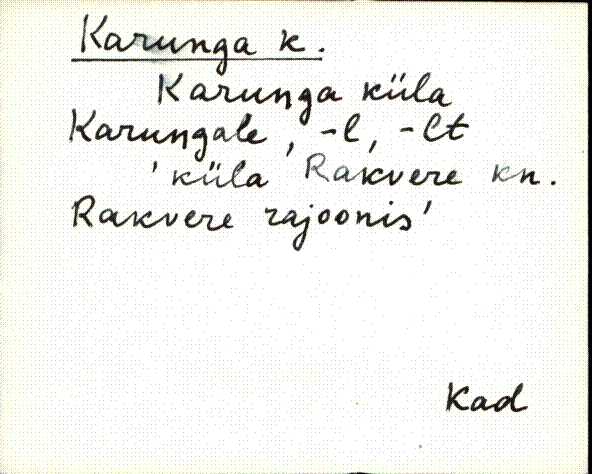 Karunga k.
Karuŋga küla
Karuŋgale, -l, -lt
'küla Rakvere kn.
Rakvere rajoonis'
Kad